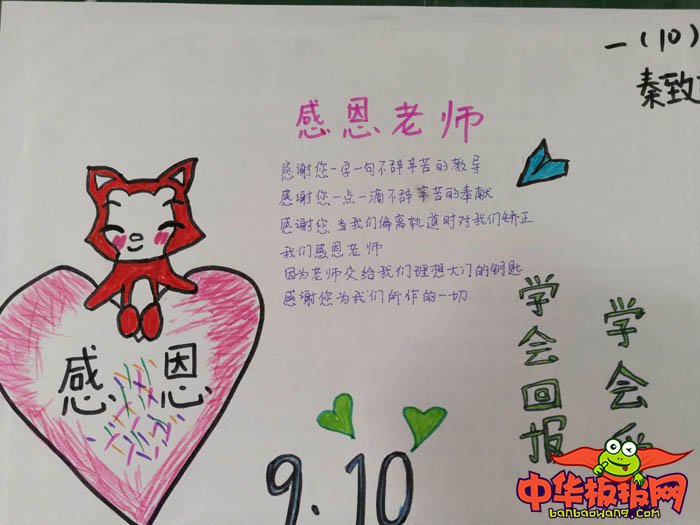 一(10)
秦致
感恩老师
感谢您一字一句不辞辛苦的教导
感谢您一点一滴不辞辛苦的奉献
感谢您当我们偏离轨道时对我们矫正
我们感恩老师
因为老师交给我们理想大门的钥匙
感谢您为我们所作的一切
学会
学会回报
感恩
9.10
中华板报网
banbaowang.com